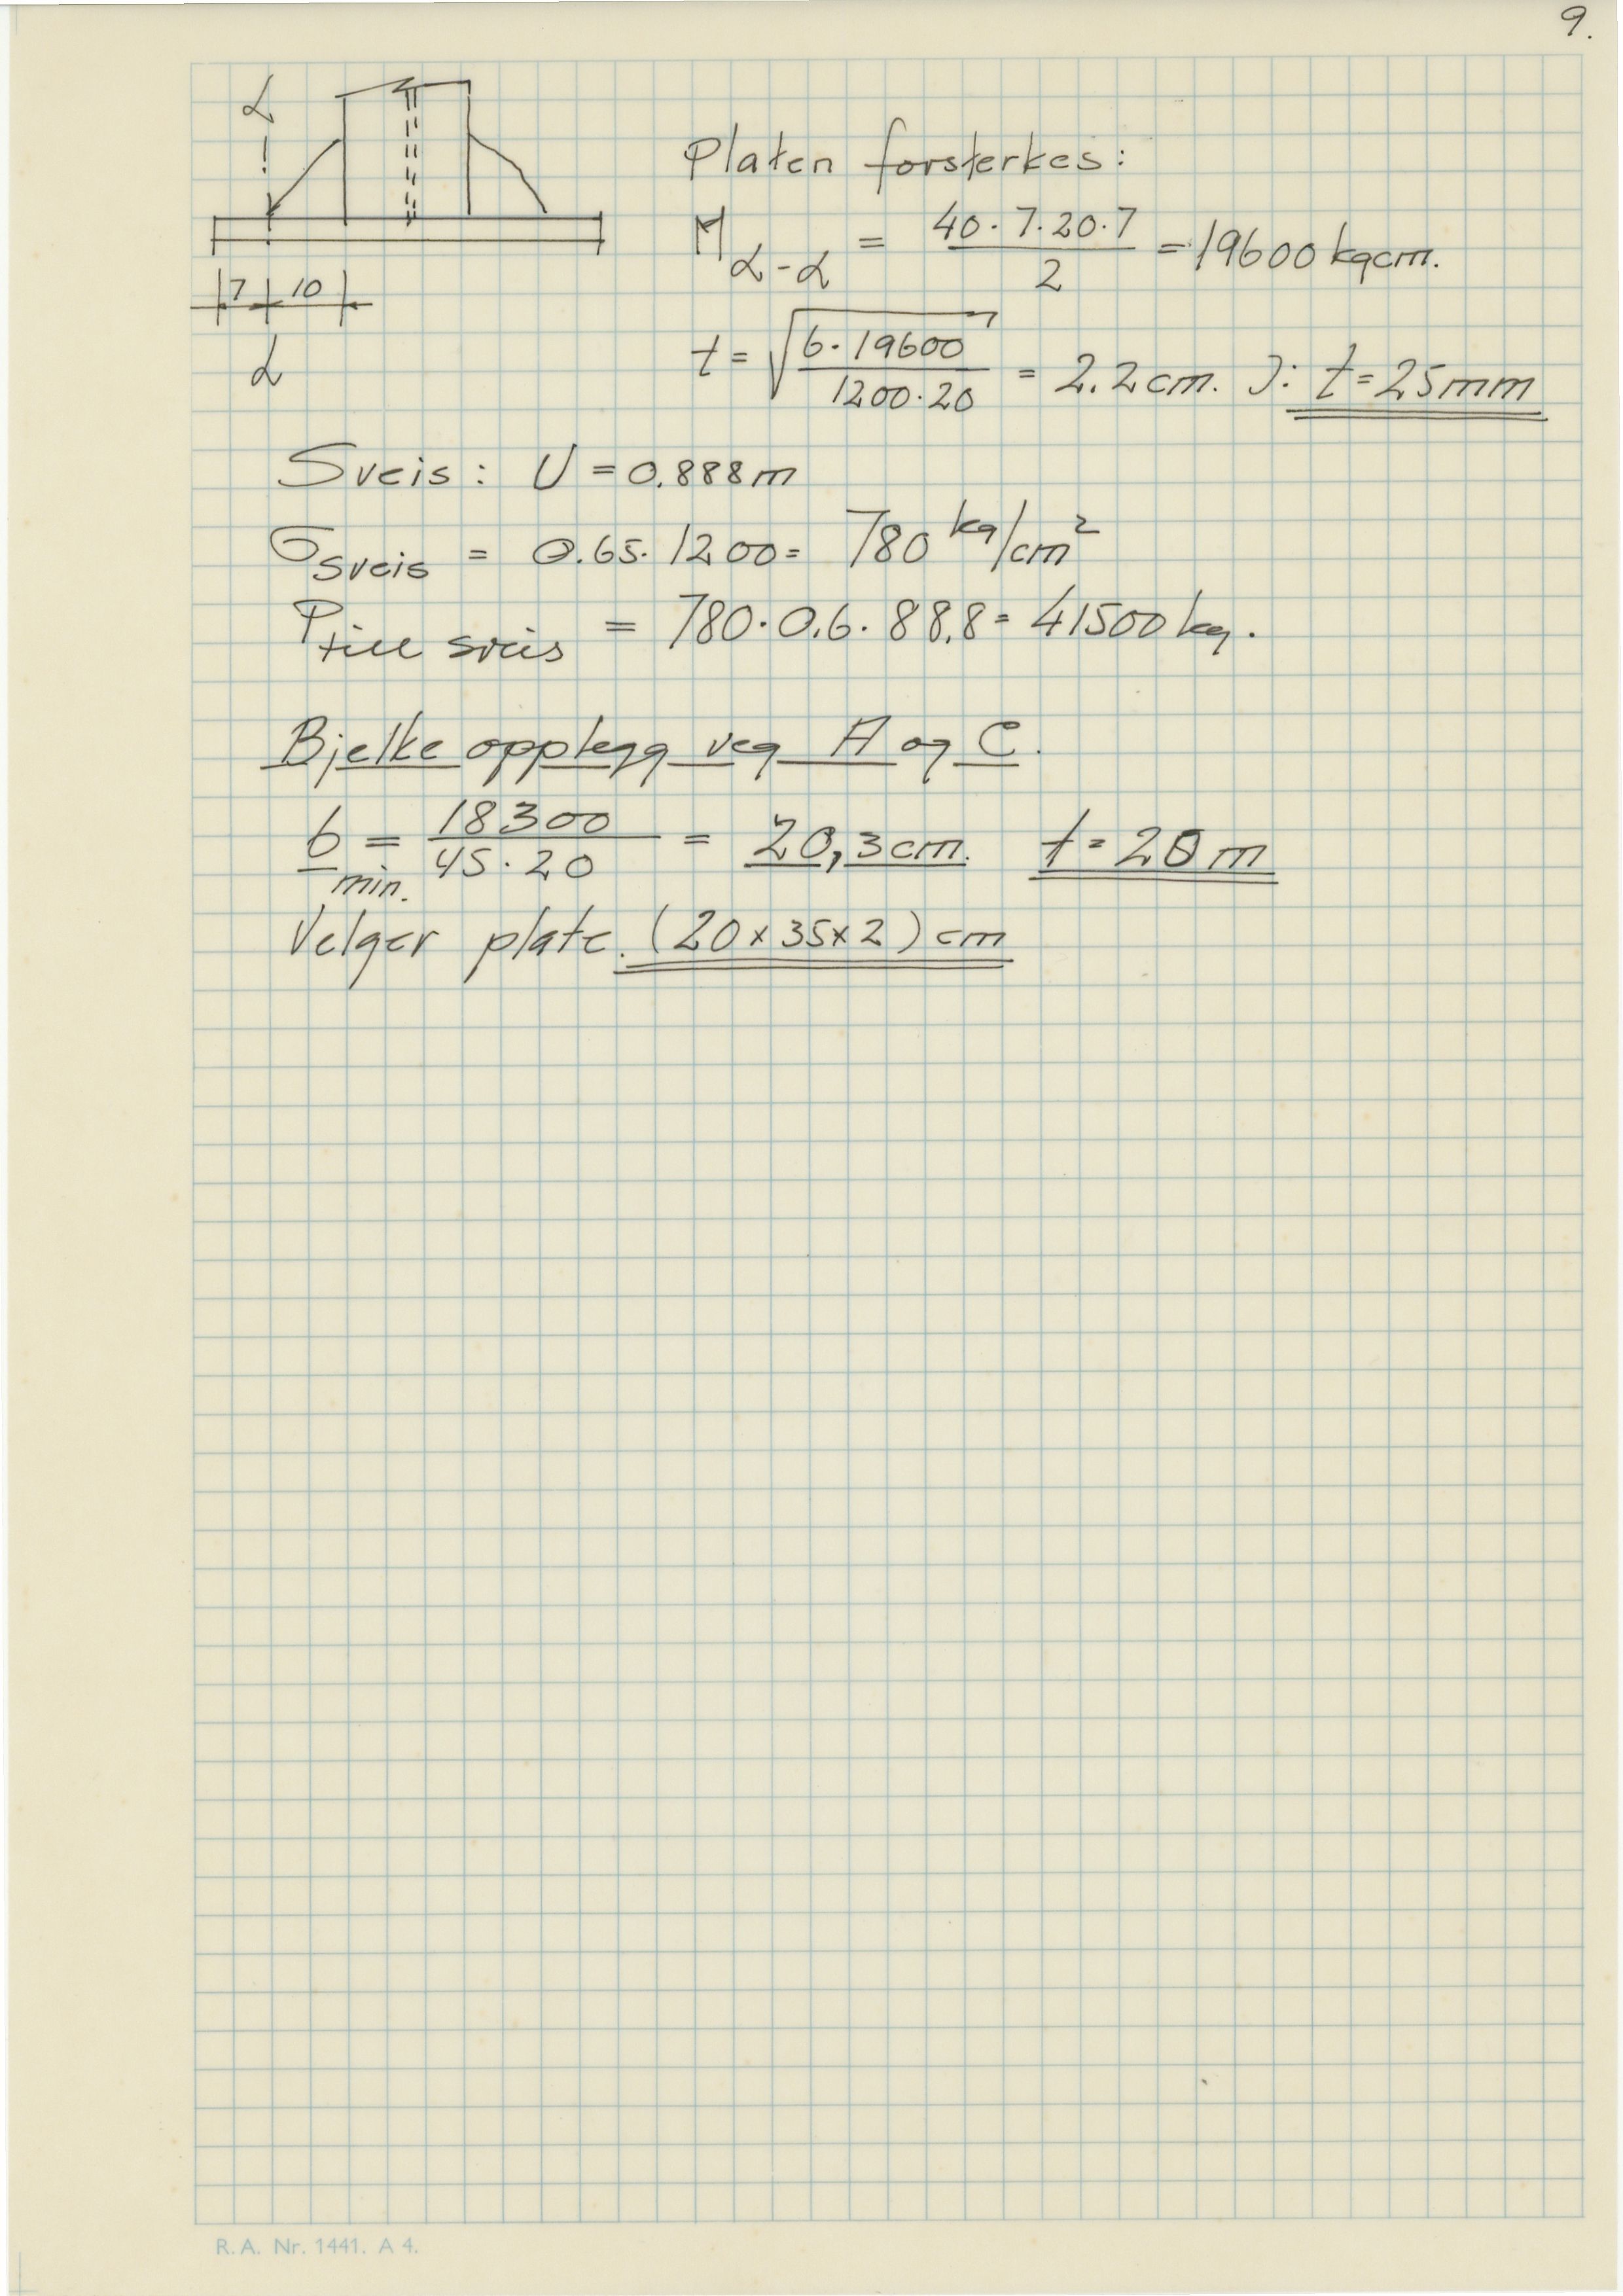 9.
α
7 10
α
Platen forsterkes:
M α-α = 40·7·20·7 / 2 = 19600 kgcm.
t = √ 6·19600 / 1200·20 = 2.2 cm. ɔ: t = 25 mm
Sveis: U = 0.888 m
σ sveis = 0.65·1200 = 780 kg/cm²
P till sveis = 780·0.6·88.8 = 41500 kg.
Bjelke opplegg veg A og C.
b min. = 18300 / 45·20 = 20,3 cm. t = 20 m
Velger plate. (20×35×2) cm
R.A. Nr. 1441. A 4.